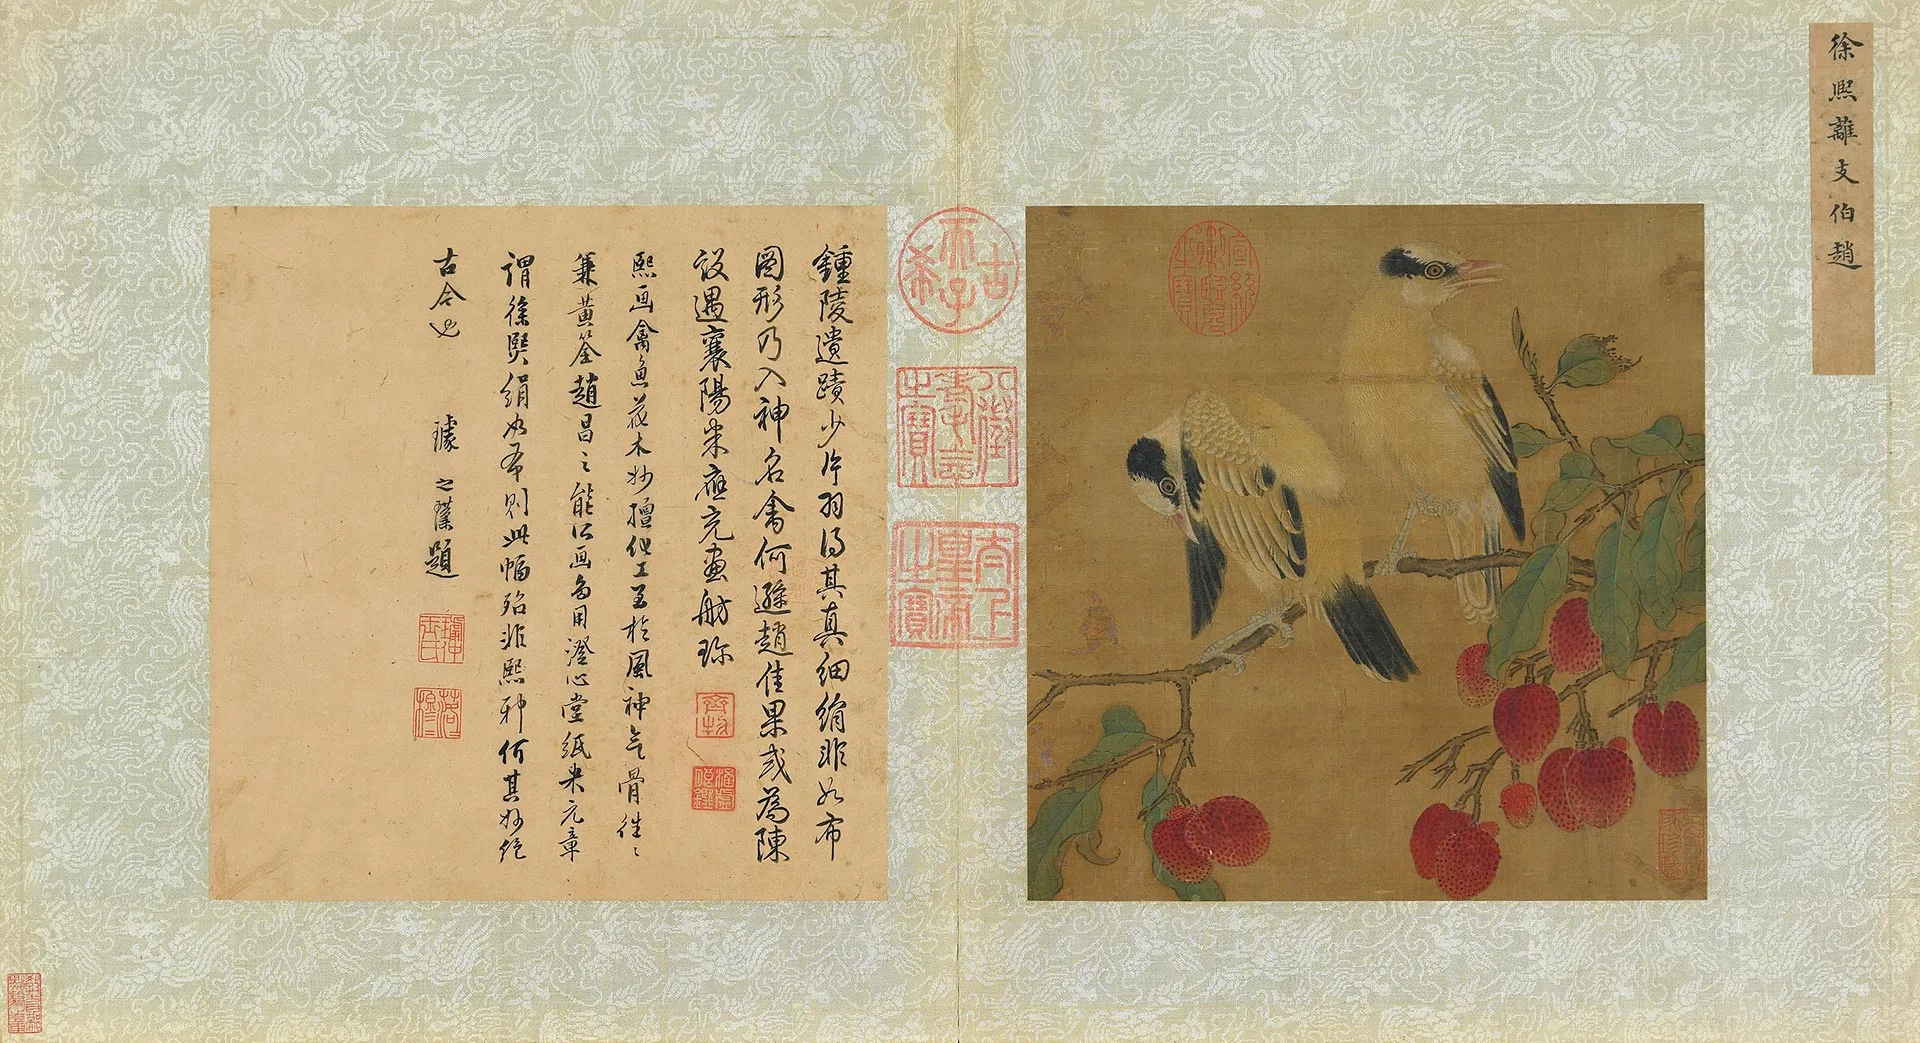 徐熙離支伯趙
宣統御覽之寶
古希天子
八徵耄念之寶
太上皇帝之寶
鍾陵遺蹟少片羽得其真細絹非如布
圖形乃入神名禽何遜趙佳果或為陳
設遇襄陽米應充畫舫珎
熙画禽魚花木妙擅化工至於風神气骨往〻
兼黃筌趙昌之能所画多用澄心堂紙米元章
謂徐熙絹如布則此幅殆非熙耶何其妙絕
古今也 璩之璞題